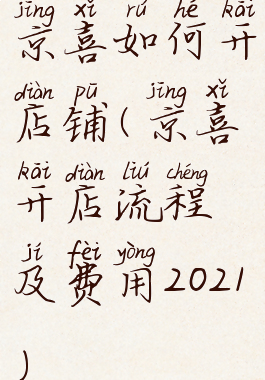 jīng xǐ rú hé kāi
京喜如何开
diàn pū jīng xǐ
店铺(京喜
kāi diàn liú chéng
开店流程
jí fèi yòng
及费用2021
)